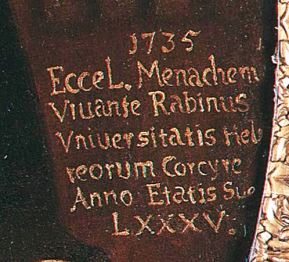 1735
Ecce L. Menachem
Viuante Rabinus
Vniuersitatis Heb
reorum Corcyre
Anno Etatis Suo
LXXXV.